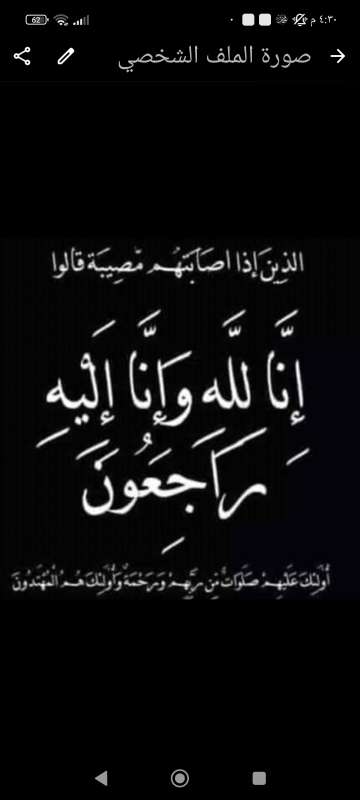 ٤:٣٠ م
62
صورة الملف الشخصي
الذين إذا اصابتهم مصيبة قالوا
إنا لله وإنا إليه
راجعون
أولئك عليهم صلوات من ربهم ورحمة وأولئك هم المهتدون